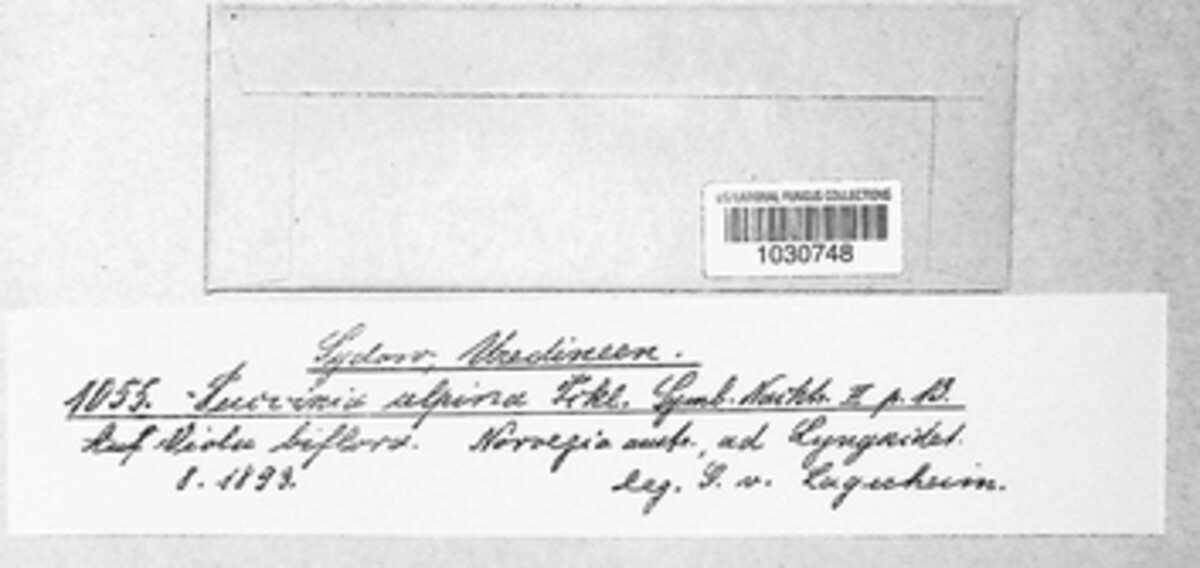 US NATIONAL FUNGUS COLLECTIONS
1030748
Sydow, Uredineen.
1055. Puccinia alpina Fckl. Symb. Nachtr. II p. 13.
Auf Viola biflora. Norvegia , ad Lyngseidet.
8. 1893. leg. G. v. Lagerheim.